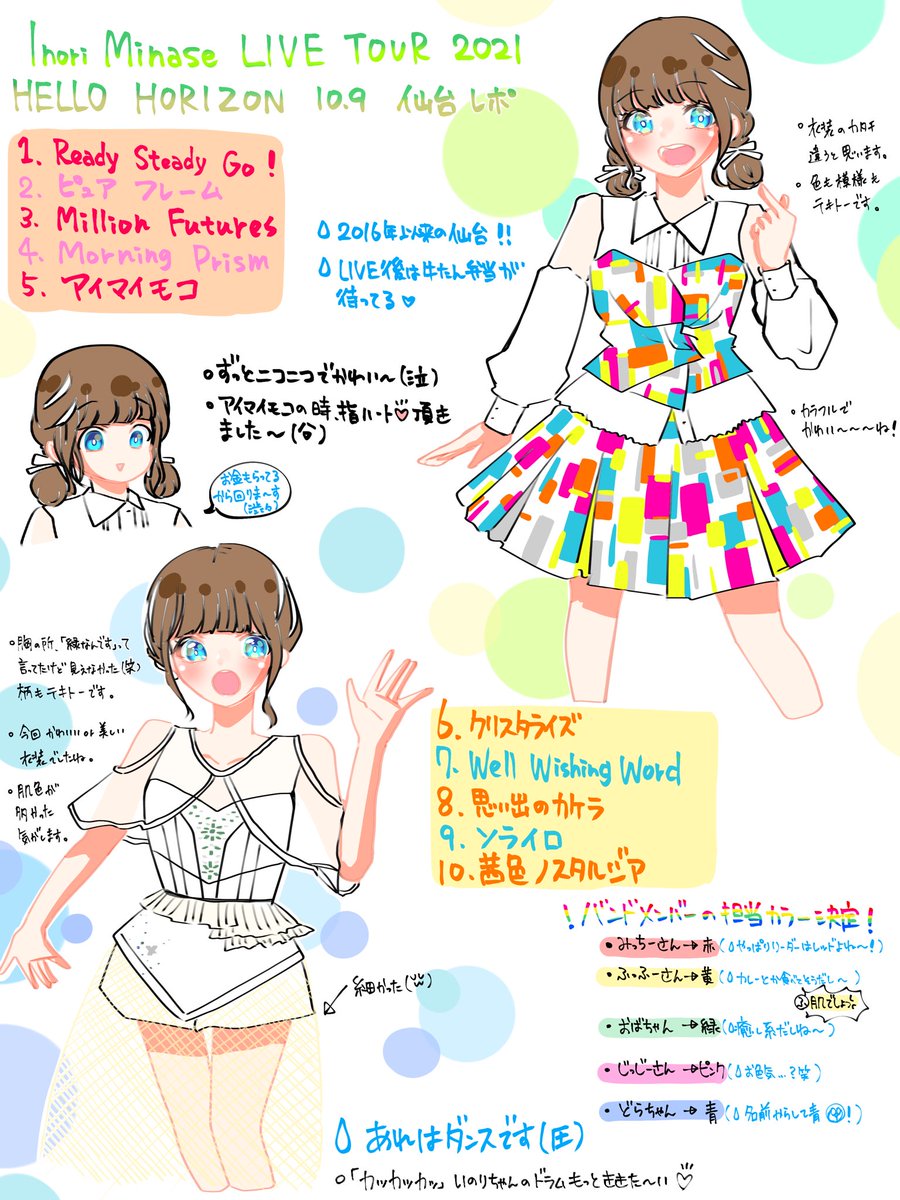 Inori Minase LIVE TOUR 2021
HELLO HORIZON 10.9 仙台レポ
1. Ready Steady Go!
2. ピュアフレーム
3. Million Futures
4. Morning Prism
5. アイマイモコ
2016年以来の仙台!!
LIVE後は牛たん弁当が
待ってる♡
。衣装のカタチ
違うと思います。
。色も模様も
テキトーです。
。ずっとニコニコでかわい〜(泣)
。アイマイモコの時、指ハート♡頂き
ました〜(合)
お金もらってる
から回りま〜す
。カラフルで
かわい〜〜〜ね!
。胸の所、「緑なんです」って
言ってたけど見えなかった(笑)
柄もテキトーです。
。今回かわいいor美しい
衣装でしたね。
。肌色が
多かった
気がします。
6. クリスタライズ
7. Well Wishing Word
8. 思い出のカケラ
9. ソライロ
10. 茜色ノスタルジア
細かった
!バンドメンバーの担当カラー決定!
・みっちーさん→赤(やっぱりリーダーはレッドよね〜!)
・ふっふーさん→黄(カレーとか食べてそうだし〜)
肌でしょっ
・おばちゃん→緑(癒し系だしね〜)
・じっじーさん→ピンク(お色気...?笑)
・どらちゃん→青(名前からして青!)
あれはダンスです(圧)
。「カッカッカッ」いのりちゃんのドラムもっとききた〜い♡